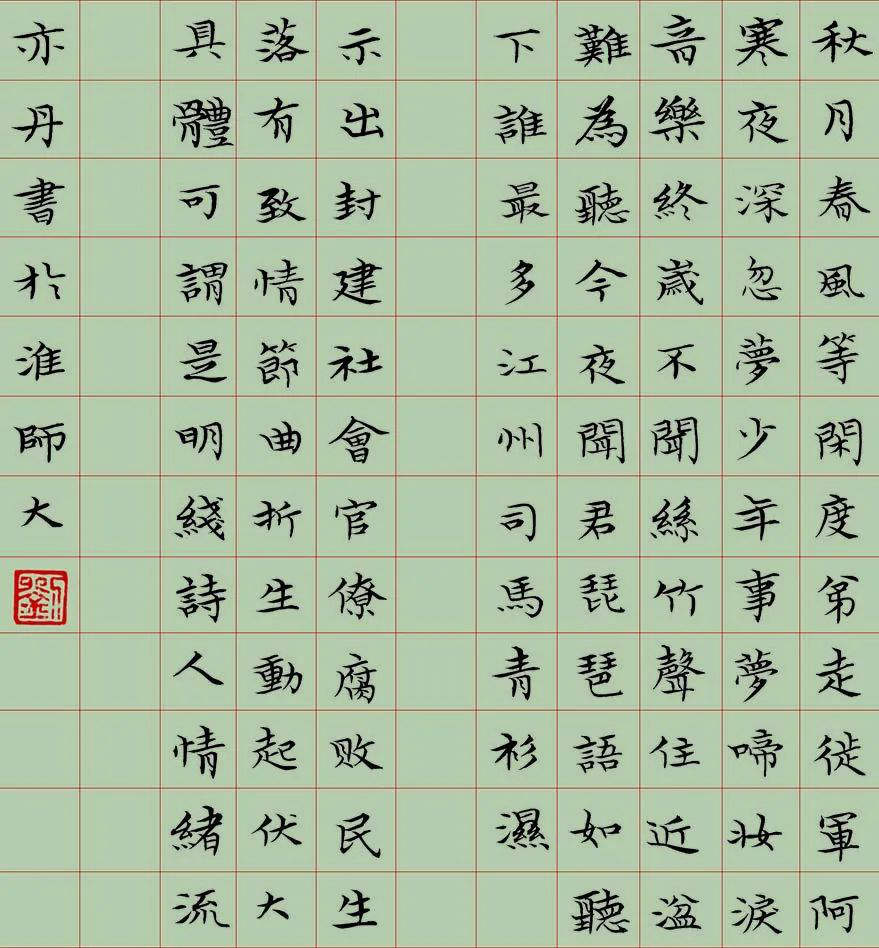 秋月春風等閑度弟走從軍阿
寒夜深忽夢少年事夢啼妝淚
音樂終歲不聞絲竹聲住近湓
難為聽今夜聞君琵琶語如聽
下誰最多江州司馬青衫濕
示出封建社會官僚腐敗民生
落有致情節曲折生動起伏大
具體可謂是明綫詩人情緒流
亦丹書於淮師大